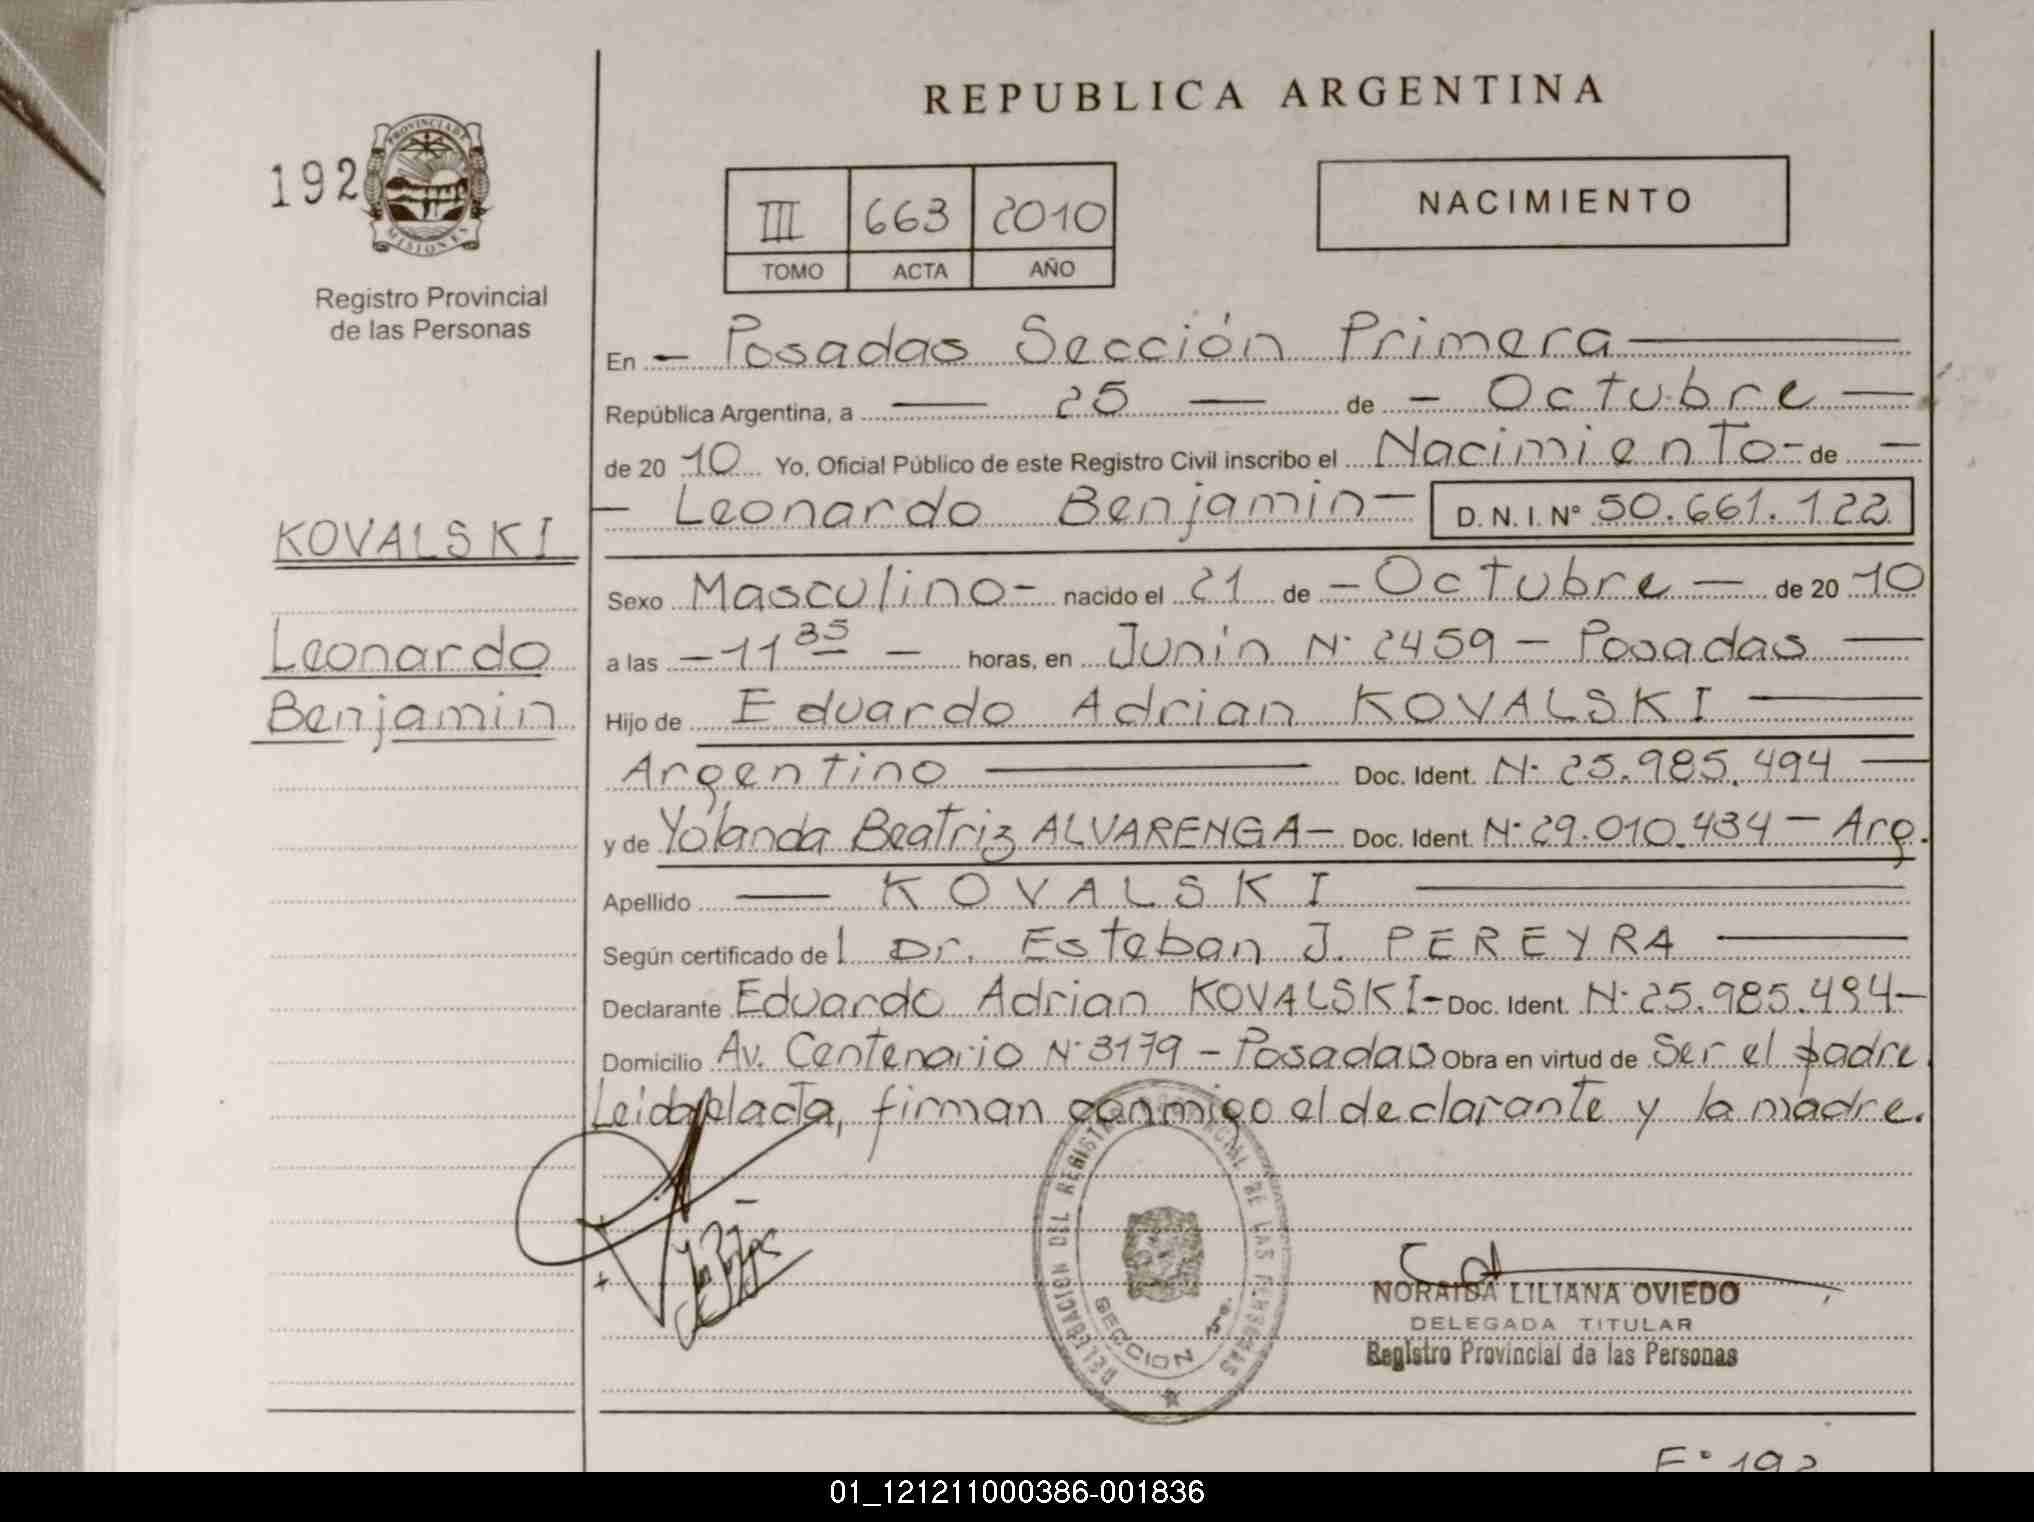 REPUBLICA ARGENTINA
192
PROVINCIA DE
MISIONES
Registro Provincial
de las Personas
III 663 2010
TOMO ACTA AÑO
NACIMIENTO
En — Posadas Sección Primera —
República Argentina, a — 25 — de — Octubre —
de 20 10 Yo, Oficial Público de este Registro Civil inscribo el Nacimiento - de —
— Leonardo Benjamin — D. N. I. Nº 50.661.122
KOVALSKI
Leonardo
Benjamin
Sexo Masculino - nacido el 21 de — Octubre — de 20 10
a las — 11 35 — horas, en Junin Nº 2459 — Posadas —
Hijo de Eduardo Adrian KOVALSKI —
Argentino — Doc. Ident. Nº 25.985.494 —
y de Yolanda Beatriz ALVARENGA — Doc. Ident. Nº 29.010.434 — Arg.
Apellido — KOVALSKI —
Según certificado de l Dr. Esteban J. PEREYRA —
Declarante Eduardo Adrian KOVALSKI - Doc. Ident. Nº 25.985.494 —
Domicilio Av. Centenario Nº 3179 — Posadas Obra en virtud de Ser el padre.
Leida el acta, firman conmigo el declarante y la madre.
DELEGACION DEL REGISTRO PROVINCIAL DE LAS PERSONAS
SECCION 1ra.
NORAIDA LILIANA OVIEDO
DELEGADA TITULAR
Registro Provincial de las Personas
Fº 192
01_121211000386-001836